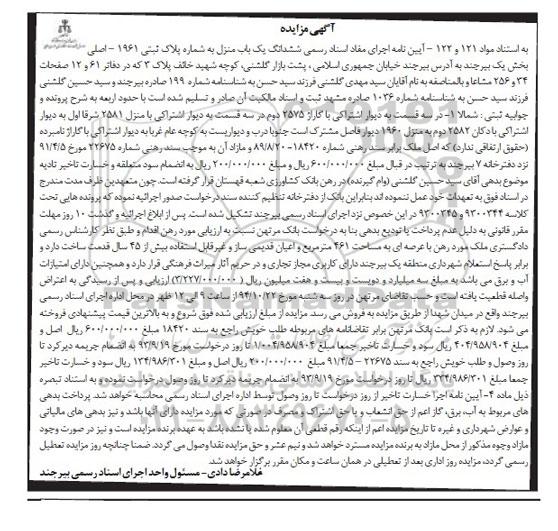 آگهی مزایده
به استناد مواد ۱۲۱ و ۱۲۲ - آیین نامه اجرای مفاد اسناد رسمی ششدانگ یک باب منزل به شماره پلاک ثبتی ۱۹۶۱ - اصلی
بخش یک بیرجند به آدرس بیرجند خیابان جمهوری اسلامی ، پشت بازار گلشنی، کوچه شهید خائف پلاک ۳ که در دفاتر ۶۱ و ۱۲ صفحات
۳۴ و ۲۵۶ مشاعا و بالمناصفه به نام آقایان سید مهدی گلشنی فرزند سید حسن به شناسنامه شماره ۱۹۹ صادره بیرجند و سید حسین گلشنی
فرزند سید حسن به شناسنامه شماره ۱۰۳۶ صادره مشهد ثبت و اسناد مالکیت آن صادر و تسلیم شده است با حدود اربعه به شرح پرونده و
جوابیه ثبتی : شمالا ۱- در سه قسمت به دیوار اشتراکی با گاراژ ۲۵۷۵ دوم در سه قسمت به دیوار اشتراکی با منزل ۲۵۸۱ شرقا اول به دیوار
اشتراکی با دکان ۲۵۸۲ دوم به منزل ۱۹۶۰ دیوار فاصل مشترک است جنوبا درب و دیواریست به کوچه عام غربا به دیوار اشتراکی با گاراژ نامبرده
(حقوق ارتفاقی ندارد) که اصل ملک برابر سند رهنی شماره ۱۸۴۲۰-۸۹/۸/۲۰ و مازاد آن به موجب سند رهنی شماره ۲۲۶۷۵ مورخ ۹۱/۴/۵
نزد دفترخانه ۷ بیرجند به ترتیب در قبال مبلغ ۶۰۰/۰۰۰/۰۰۰ ریال و مبلغ ۲۰۰/۰۰۰/۰۰۰ ریال به انضمام سود متعلقه و خسارت تاخیر تادیه
موضوع بدهی آقای سید حسین گلشنی (وام گیرنده) در رهن بانک کشاورزی شعبه قهستان قرار گرفته است. چون متعهدین ظرف مدت مندرج
در اسناد فوق به تعهدات خود عمل ننموده اند بنابراین بانک از دفترخانه تنظیم کننده سند درخواست صدور اجرائیه نموده که پرونده هایی تحت
کلاسه ۹۳۰۰۳۴۴ و ۹۳۰۰۳۴۵ در این خصوص نزد اجرای اسناد رسمی بیرجند تشکیل شده است. پس از ابلاغ اجرائیه و گذشت ۱۰ روز مهلت
مقرر قانونی به دلیل عدم پرداخت یا تودیع بدهی بنا به درخواست بانک مرتهن نسبت به ارزیابی مورد رهن اقدام و طبق نظر کارشناس رسمی
دادگستری ملک مورد رهن با عرصه ای به مساحت ۴۶۱ مترمربع و اعیان قدیمی ساز و غیرقابل استفاده بیش از ۴۵ سال قدمت ساخت دارد و
برابر پاسخ استعلام شهرداری منطقه یک بیرجند دارای کاربری مجاز تجاری و در حریم آثار میراث فرهنگی قرار دارد و همچنین دارای امتیازات
آب و برق می باشد به مبلغ سه میلیارد و دویست و بیست و هفت میلیون ریال (۳/۲۲۷/۰۰۰/۰۰۰) ارزیابی و پس از رسیدگی به اعتراض
واصله قطعیت یافته است و حسب تقاضای مرتهن در روز سه شنبه مورخ ۹۴/۱۰/۲۲ از ساعت ۹ الی ۱۲ ظهر در محل اداره اجرای اسناد رسمی
بیرجند واقع در میدان شهدا از طریق مزایده به فروش می رسد. مزایده از مبلغ ارزیابی شده فوق شروع و به بالاترین قیمت پیشنهادی فروخته
می شود. لازم به ذکر است بانک مرتهن برابر تقاضانامه های مربوطه طلب خویش راجع به سند ۱۸۴۲۰ مبلغ ۶۰۰/۰۰۰/۰۰۰ ریال اصل و
مبلغ ۴۰۴/۹۵۸/۹۰۴ ریال سود و خسارت تاخیر جمعا مبلغ ۱/۰۰۴/۹۵۸/۹۰۴ ریال تا روز درخواست مورخ ۹۳/۹/۱۹ به انضمام جریمه دیرکرد تا
روز وصول و طلب خویش راجع به سند ۲۲۶۷۵ - ۹۱/۴/۵ مبلغ ۲۰۰/۰۰۰/۰۰۰ ریال اصل و مبلغ ۱۳۴/۹۸۶/۳۰۱ ریال سود و خسارت تاخیر
جمعا مبلغ ۳۳۴/۹۸۶/۳۰۱ ریال تا روز درخواست مورخ ۹۳/۹/۱۹ به انضمام جریمه دیرکرد تا روز وصول درخواست نموده و به استناد تبصره
ذیل ماده ۴- آیین نامه اجرا خسارت تاخیر از روز درخواست تا روز وصول توسط اداره اجرای اسناد رسمی محاسبه خواهد شد. پرداخت بدهی
های مربوط به آب، برق، گاز اعم از حق انشعاب و یا حق اشتراک و مصرف در صورتی که مورد مزایده دارای آنها باشد و نیز بدهی های مالیاتی
و عوارض شهرداری و غیره تا تاریخ مزایده اعم از اینکه رقم قطعی آن معلوم شده یا نشده باشد به عهده برنده مزایده است و نیز در صورت وجود
مازاد وجوه مذکور از محل مازاد به برنده مزایده مسترد خواهد شد و نیم عشر و حق مزایده نقدا وصول می گردد. ضمنا چنانچه روز مزایده تعطیل
رسمی گردد، مزایده روز اداری بعد از تعطیلی در همان ساعت و مکان مقرر برگزار خواهد شد.
غلامرضا دادی - مسئول واحد اجرای اسناد رسمی بیرجند